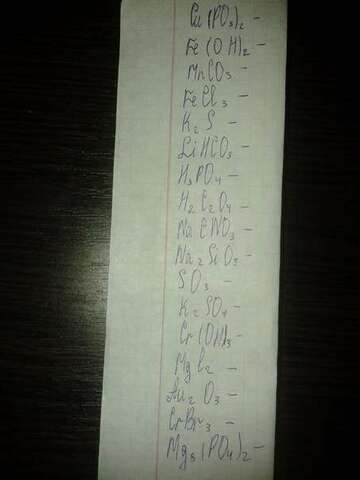 Cu(PO3)2 -
Fe(OH)2 -
MnCO3 -
FeCl3 -
K2S -
LiHCO3 -
H3PO4 -
H2C2O4 -
Na2SiO3 -
SO3 -
K2SO4 -
Cr(OH)3 -
Au2O3 -
CrBr3 -
Mg3(PO4)2 -